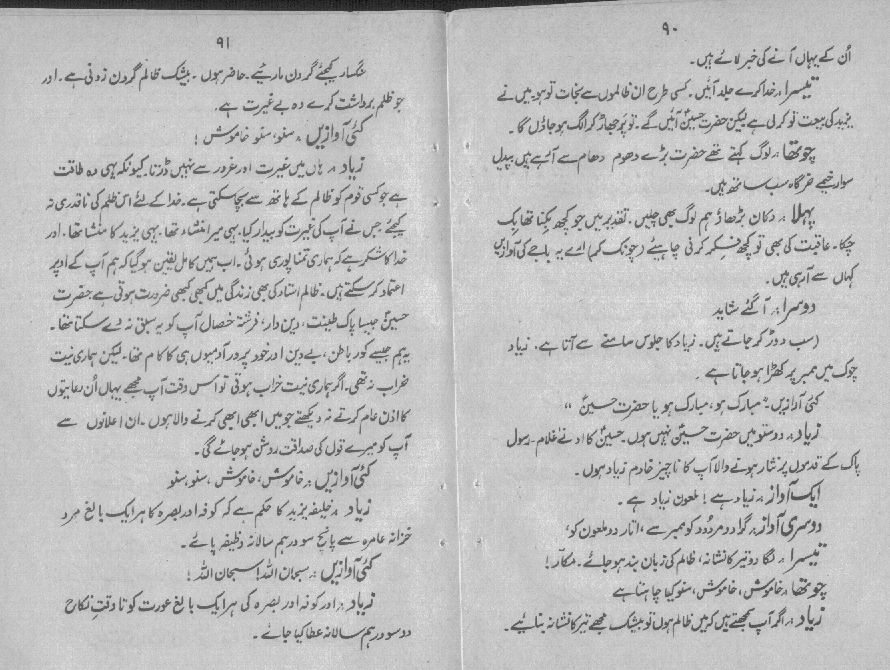 ۹۰
اُن کے یہاں آنے کی خبر لائے ہیں۔
تیسرا :۔ خدا کرے جلد آئیں۔ کسی طرح ان ظالموں سے نجات تو ہو۔ میں نے
یزید کی بیعت تو کر لی ہے لیکن حضرت حسینؑ آئیں گے۔ تو پَر جھاڑ کر الگ ہو جاؤں گا۔
چوتھا :۔ لوگ کہتے تھے حضرت بڑے دھوم دھام سے آئے ہیں پیدل
سوار خیمے خرگاہ سب ساتھ ہیں۔
پہلا :۔ دکان بڑھاؤ ہم لوگ بھی چلیں۔ تقدیر میں جو کچھ بکنا تھا بِک
چکا۔ عاقبت کی بھی تو کچھ فکر کرنی چاہئے (چونک کر) اے یہ باجے کی آوازیں
کہاں سے آ رہی ہیں۔
دوسرا :۔ آ گئے شاید
(سب دوڑ کر جاتے ہیں۔ زیاد کا جلوس سامنے سے آتا ہے۔ زیاد
چوک میں ممبر پر کھڑا ہو جاتا ہے۔
کئی آوازیں۔ مبارک ہو، مبارک ہو یا حضرت حسینؑ"
زیاد :۔ دوستو میں حضرت حسینؑ نہیں ہوں۔ حسینؑ کا ادنےٰ غلام۔ رسول
پاک کے قدموں پر نثار ہونے والا آپ کا ناچیز خادم زیاد ہوں۔
ایک آواز :۔ زیاد ہے! ملعون زیاد ہے۔
دوسری آواز :۔ گرا دو مردود کو ممبر سے، اتار دو ملعون کو،
تیسرا :۔ لگا دو تیر کا نشانہ، ظالم کی زبان بند ہو جائے۔ مکّار!
چوتھا :۔ خاموش، خاموش، سنو کیا چاہتا ہے
زیاد :۔ اگر آپ سمجھتے ہیں کہ میں ظالم ہوں تو بیشک مجھے تیر کا نشانہ بنائیے۔
۹۱
سنگسار کیجئے گردن ماریئے۔ حاضر ہوں۔ بیشک ظالم گردن زدنی ہے۔ اور
جو ظلم برداشت کرے وہ بے غیرت ہے۔
کئی آوازیں :۔ سنو، سنو خاموش!
زیاد :۔ ہاں میں غیرت اور غرور سے نہیں ڈرتا۔ کیونکہ یہی وہ طاقت
ہے جو کسی قوم کو ظالم کے ہاتھ سے بچا سکتی ہے۔ خدا کے لئے اس ظلم کی ناقدری نہ
کیجئے جس نے آپ کی غیرت کو بیدار کیا۔ یہی میرا منشاء تھا۔ یہی یزید کا منشا تھا۔ اور
خدا کا شکر ہے کہ ہماری تمنا پوری ہوئی۔ اب ہمیں کامل یقین ہو گیا کہ ہم آپ کے اوپر
اعتماد کر سکتے ہیں۔ ظالم استاد کی بھی زندگی میں کبھی کبھی ضرورت ہوتی ہے حضرت
حسینؑ جیسا پاک طینت، دین دار، فرشتہ خصال آپ کو یہ سبق نہ دے سکتا تھا۔
یہ ہم جیسے کور باطن، بے دین اور خود پرور آدمیوں ہی کا کام تھا۔ لیکن ہماری نیت
خراب نہ تھی۔ اگر ہماری نیت خراب ہوتی تو اس وقت آپ مجھے یہاں اُن رعایتوں
کا اذن عام کرتے نہ دیکھتے جو میں ابھی ابھی کرنے والا ہوں۔ ان اعلانوں سے
آپ کو میرے قول کی صداقت روشن ہو جائے گی۔
کئی آوازیں :۔ خاموش، خاموش، سنو، سنو
زیاد :۔ خلیفہ یزید کا حکم ہے کہ کوفہ اور بصرہ کا ہر ایک بالغ مرد
خزانہ عامرہ سے پانچ سو درہم سالانہ وظیفہ پائے۔
کئی آوازیں :۔ سبحان اللہ! سبحان اللہ!
زیاد :۔ اور کوفہ اور بصرہ کی ہر ایک بالغ عورت کو تا وقتِ نکاح
دو سو درہم سالانہ عطا کیا جائے۔